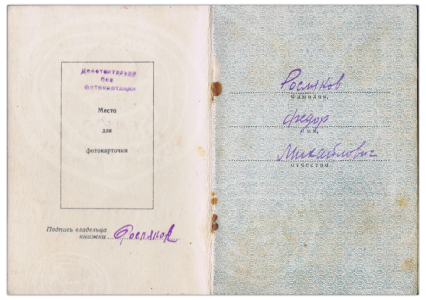 Действительно
без
фотокарточки
Место
для
фотокарточки
Подпись владельца
книжки Росляков
Росляков
Фамилия,
Федор
имя,
Михайлович
отчество